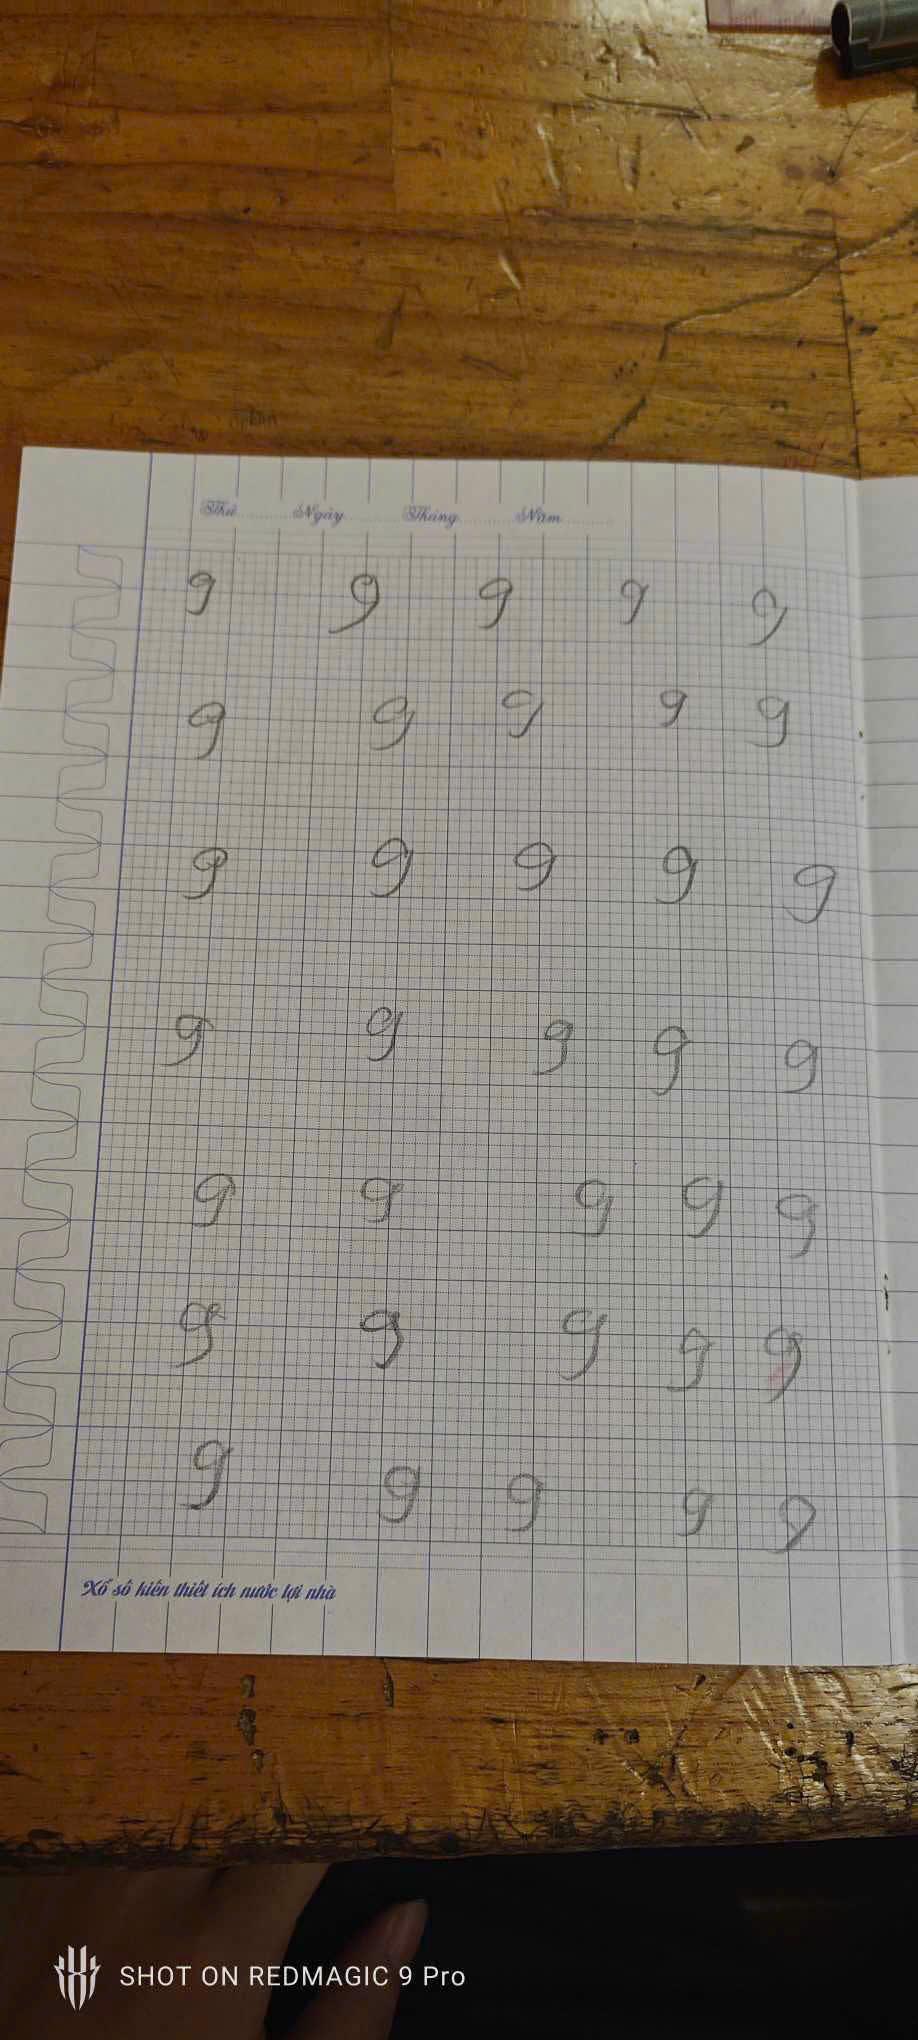 Thứ Ngày Tháng Năm
9 9 9 9 9
9 9 9 9 9
9 9 9 9 9
9 9 9 9 9
9 9 9 9 9
9 9 9 9 9
9 9 9 9 9
Xổ số kiến thiết ích nước lợi nhà
SHOT ON REDMAGIC 9 Pro